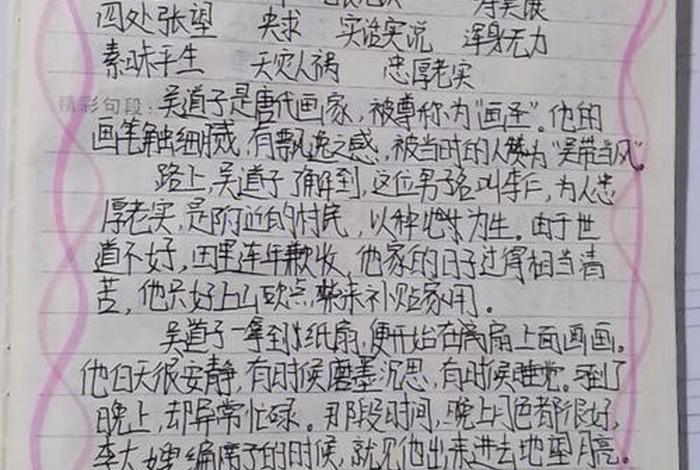 四处张望 央求 实话实说 浑身无力
素昧平生 天灾人祸 忠厚老实
精彩句段: 吴道子是唐代画家，被尊称为“画圣”。他的
画笔触细腻，有飘逸之感，被当时的人赞为“吴带当风”。
路上，吴道子了解到，这位男子名叫李仁，为人忠
厚老实，是附近的村民，以种地为生。由于世
道不好，田里连年歉收，他家的日子过得相当清
苦，他只好上山砍点柴来补贴家用。
吴道子一拿到纸扇，便开始在扇上面画画。
他白天很安静，有时候磨墨沉思，有时候睡觉。到了
晚上，却异常忙碌。那段时间，晚上月色都很好，
李大嫂编席子的时候，就见他出来进去地望月亮。